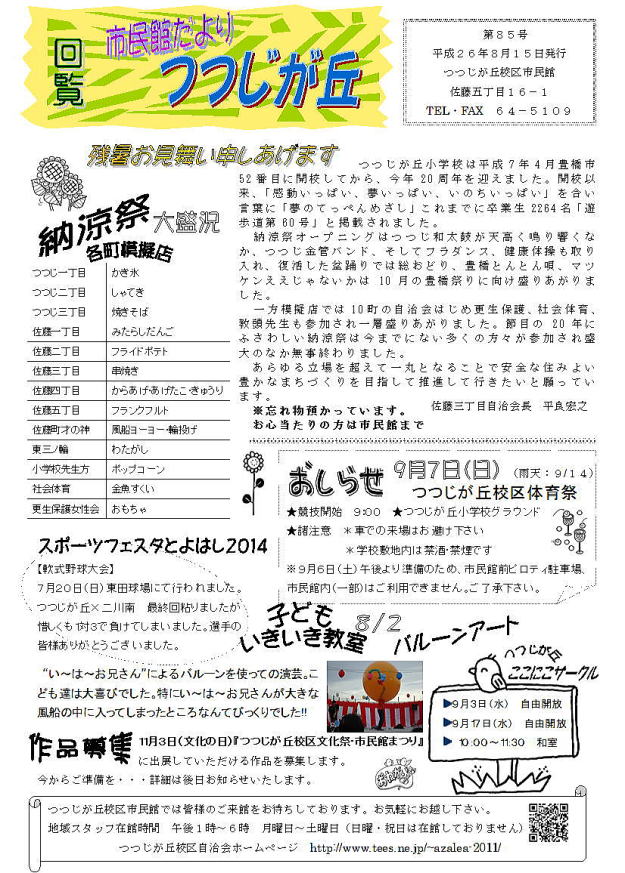 回覧
市民館だより
つつじが丘
第85号
平成26年8月15日発行
つつじが丘校区市民館
佐藤五丁目16-1
TEL・FAX 64-5109
残暑お見舞い申しあげます
納涼祭大盛況
各町模擬店
つつじ一丁目 かき氷
つつじ二丁目 しゃてき
つつじ三丁目 焼きそば
佐藤一丁目 みたらしだんご
佐藤二丁目 フライドポテト
佐藤三丁目 串焼き
佐藤四丁目 からあげ・あげたこ・きゅうり
佐藤五丁目 フランクフルト
佐藤町才の神 風船ヨーヨー・輪投げ
東三ノ輪 わたがし
小学校先生方 ポップコーン
社会体育 金魚すくい
更生保護女性会 おもちゃ
つつじが丘小学校は平成7年4月豊橋市
52番目に開校してから、今年20周年を迎えました。開校以
来、「感動いっぱい、夢いっぱい、いのちいっぱい」を合い
言葉に「夢のてっぺんめざし」これまでに卒業生2264名「遊
歩道第60号」と掲載されました。
納涼祭オープニングはつつじ和太鼓が天高く鳴り響くな
か、つつじ金管バンド、そしてフラダンス、健康体操も取り
入れ、復活した盆踊りでは総おどり、豊橋とんとん唄、マツ
ケンええじゃないかは10月の豊橋祭りに向け盛りあがりま
した。
一方模擬店では10町の自治会はじめ更生保護、社会体育、
教頭先生も参加され一層盛りあがりました。節目の20年に
ふさわしい納涼祭は今までにない多くの方々が参加され盛
大のなか無事終わりました。
あらゆる立場を超えて一丸となることで安全な住みよい
豊かなまちづくりを目指して推進して行きたいと願ってい
ます。
佐藤三丁目自治会長 平良宏之
※忘れ物預かっています。
お心当たりの方は市民館まで
おしらせ 9月7日(日) (雨天:9/14)
つつじが丘校区体育祭
★競技開始 9:00 ★つつじが丘小学校グラウンド
★諸注意 *車での来場はお避け下さい
*学校敷地内は禁酒・禁煙です
※9月6日(土)午後より準備のため、市民館前ピロティ駐車場、
市民館内(一部)はご利用できません。ご了承下さい。
スポーツフェスタとよはし2014
【軟式野球大会】
7月20日(日)東田球場にて行われました。
つつじが丘×二川南 最終回粘りましたが
惜しくも1対3で負けてしまいました。選手の
皆様ありがとうございました。
子ども
いきいき教室
8/2
バルーンアート
“い～は～お兄さん”によるバルーンを使っての演芸。こ
ども達は大喜びでした。特にい～は～お兄さんが大きな
風船の中に入ってしまったところなんてびっくりでした!!
つつじが丘
ここにこサークル
▶9月3日(水) 自由開放
▶9月17日(水) 自由開放
▶10:00～11:30 和室
作品募集
11月3日(文化の日)『つつじが丘校区文化祭・市民館まつり』
に出展していただける作品を募集します。
今からご準備を・・・詳細は後日お知らせいたします。
つつじが丘校区市民館では皆様のご来館をお待ちしております。お気軽にお越し下さい。
地域スタッフ在館時間 午後1時～6時 月曜日～土曜日(日曜・祝日は在館しておりません)
つつじが丘校区自治会ホームページ http://www.tees.ne.jp/~azalea-2011/